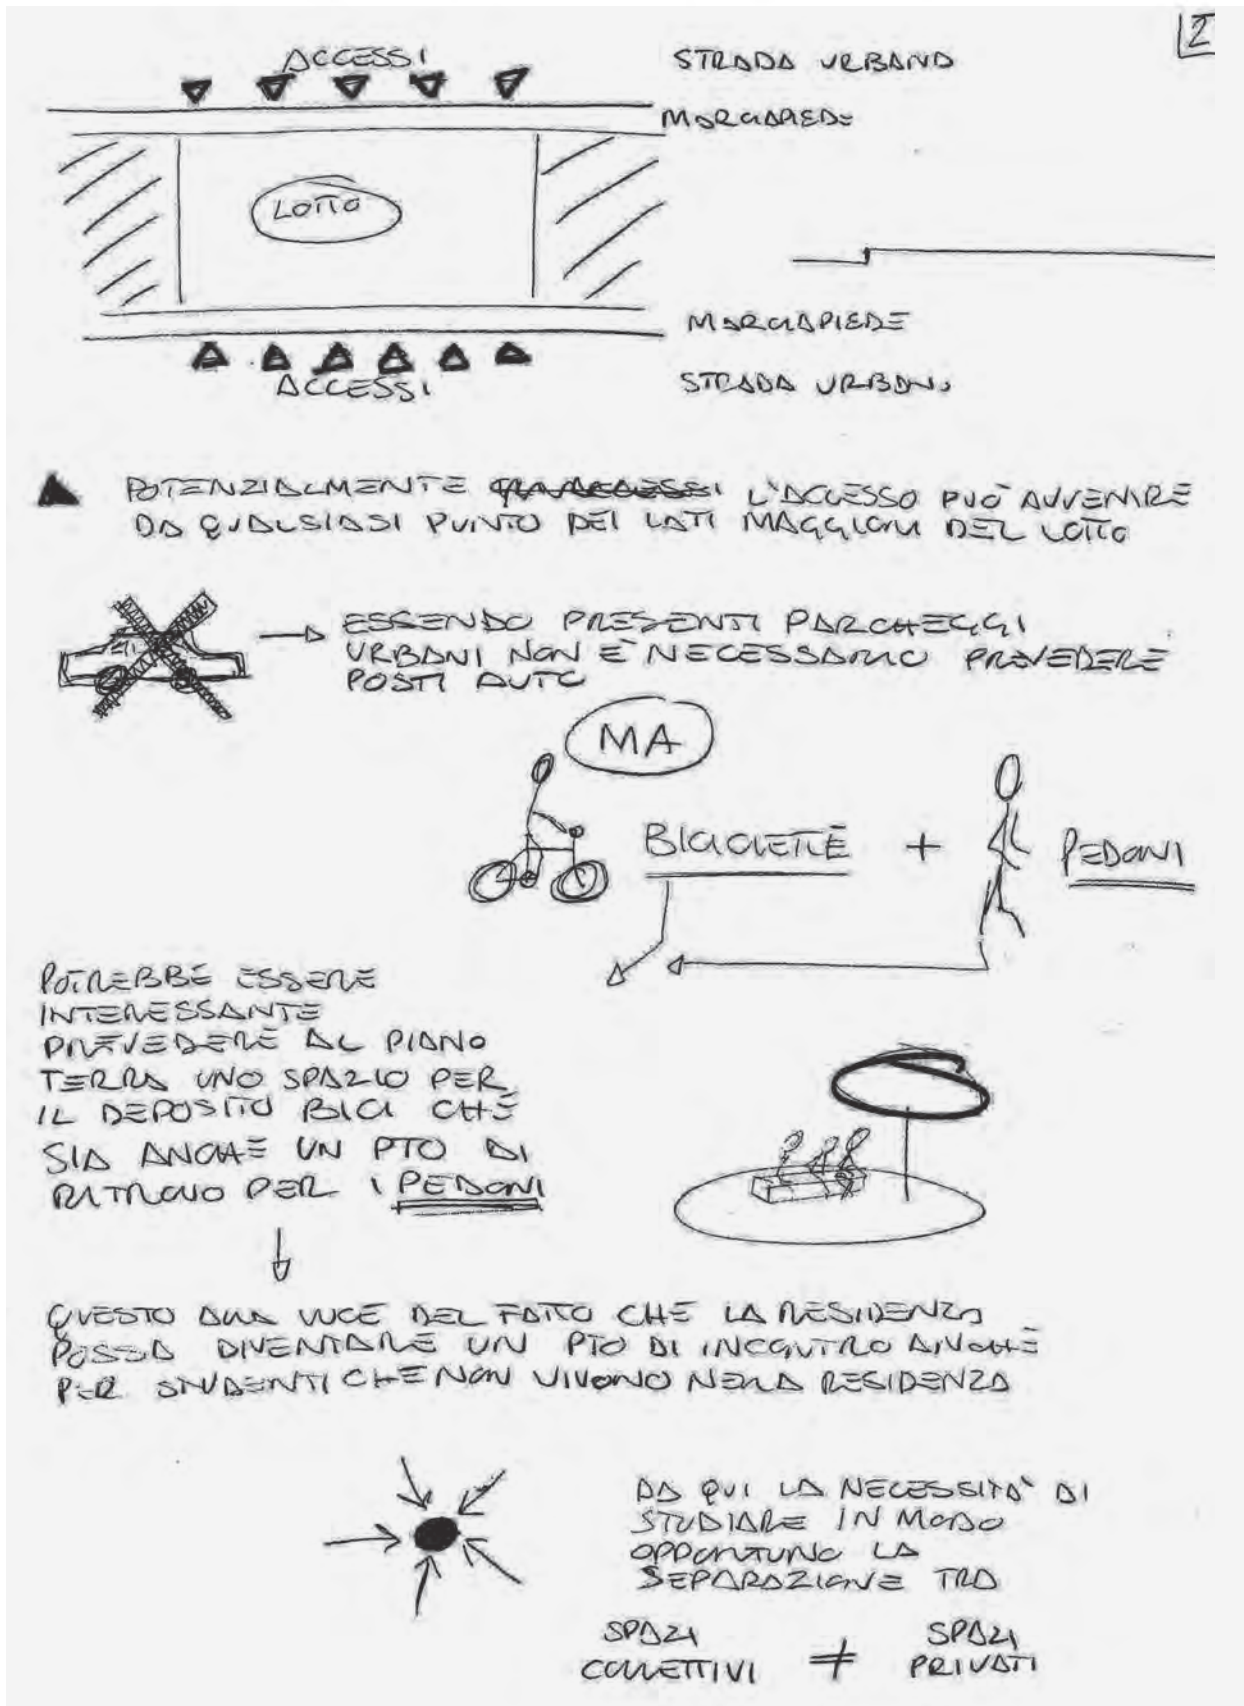 2
ACCESSI
STRADA URBANA
MARCIAPIEDE
LOTTO
MARCIAPIEDE
ACCESSI
STRADA URBANA
POTENZIALMENTE L'ACCESSO PUÒ AVVENIRE
DA QUALSIASI PUNTO DEI LATI MAGGIORI DEL LOTTO
ESSENDO PRESENTI PARCHEGGI
URBANI NON È NECESSARIO PREVEDERE
POSTI AUTO
MA
BICICLETTE + PEDONI
POTREBBE ESSERE
INTERESSANTE
PREVEDERE AL PIANO
TERRA UNO SPAZIO PER
IL DEPOSITO BICI CHE
SIA ANCHE UN PTO DI
RITROVO PER I PEDONI
QUESTO ALLA LUCE DEL FATTO CHE LA RESIDENZA
POSSA DIVENTARE UN PTO DI INCONTRO ANCHE
PER STUDENTI CHE NON VIVONO NELLA RESIDENZA
DA QUI LA NECESSITÀ DI
STUDIARE IN MODO
OPPORTUNO LA
SEPARAZIONE TRA
SPAZI COLLETTIVI ≠ SPAZI PRIVATI